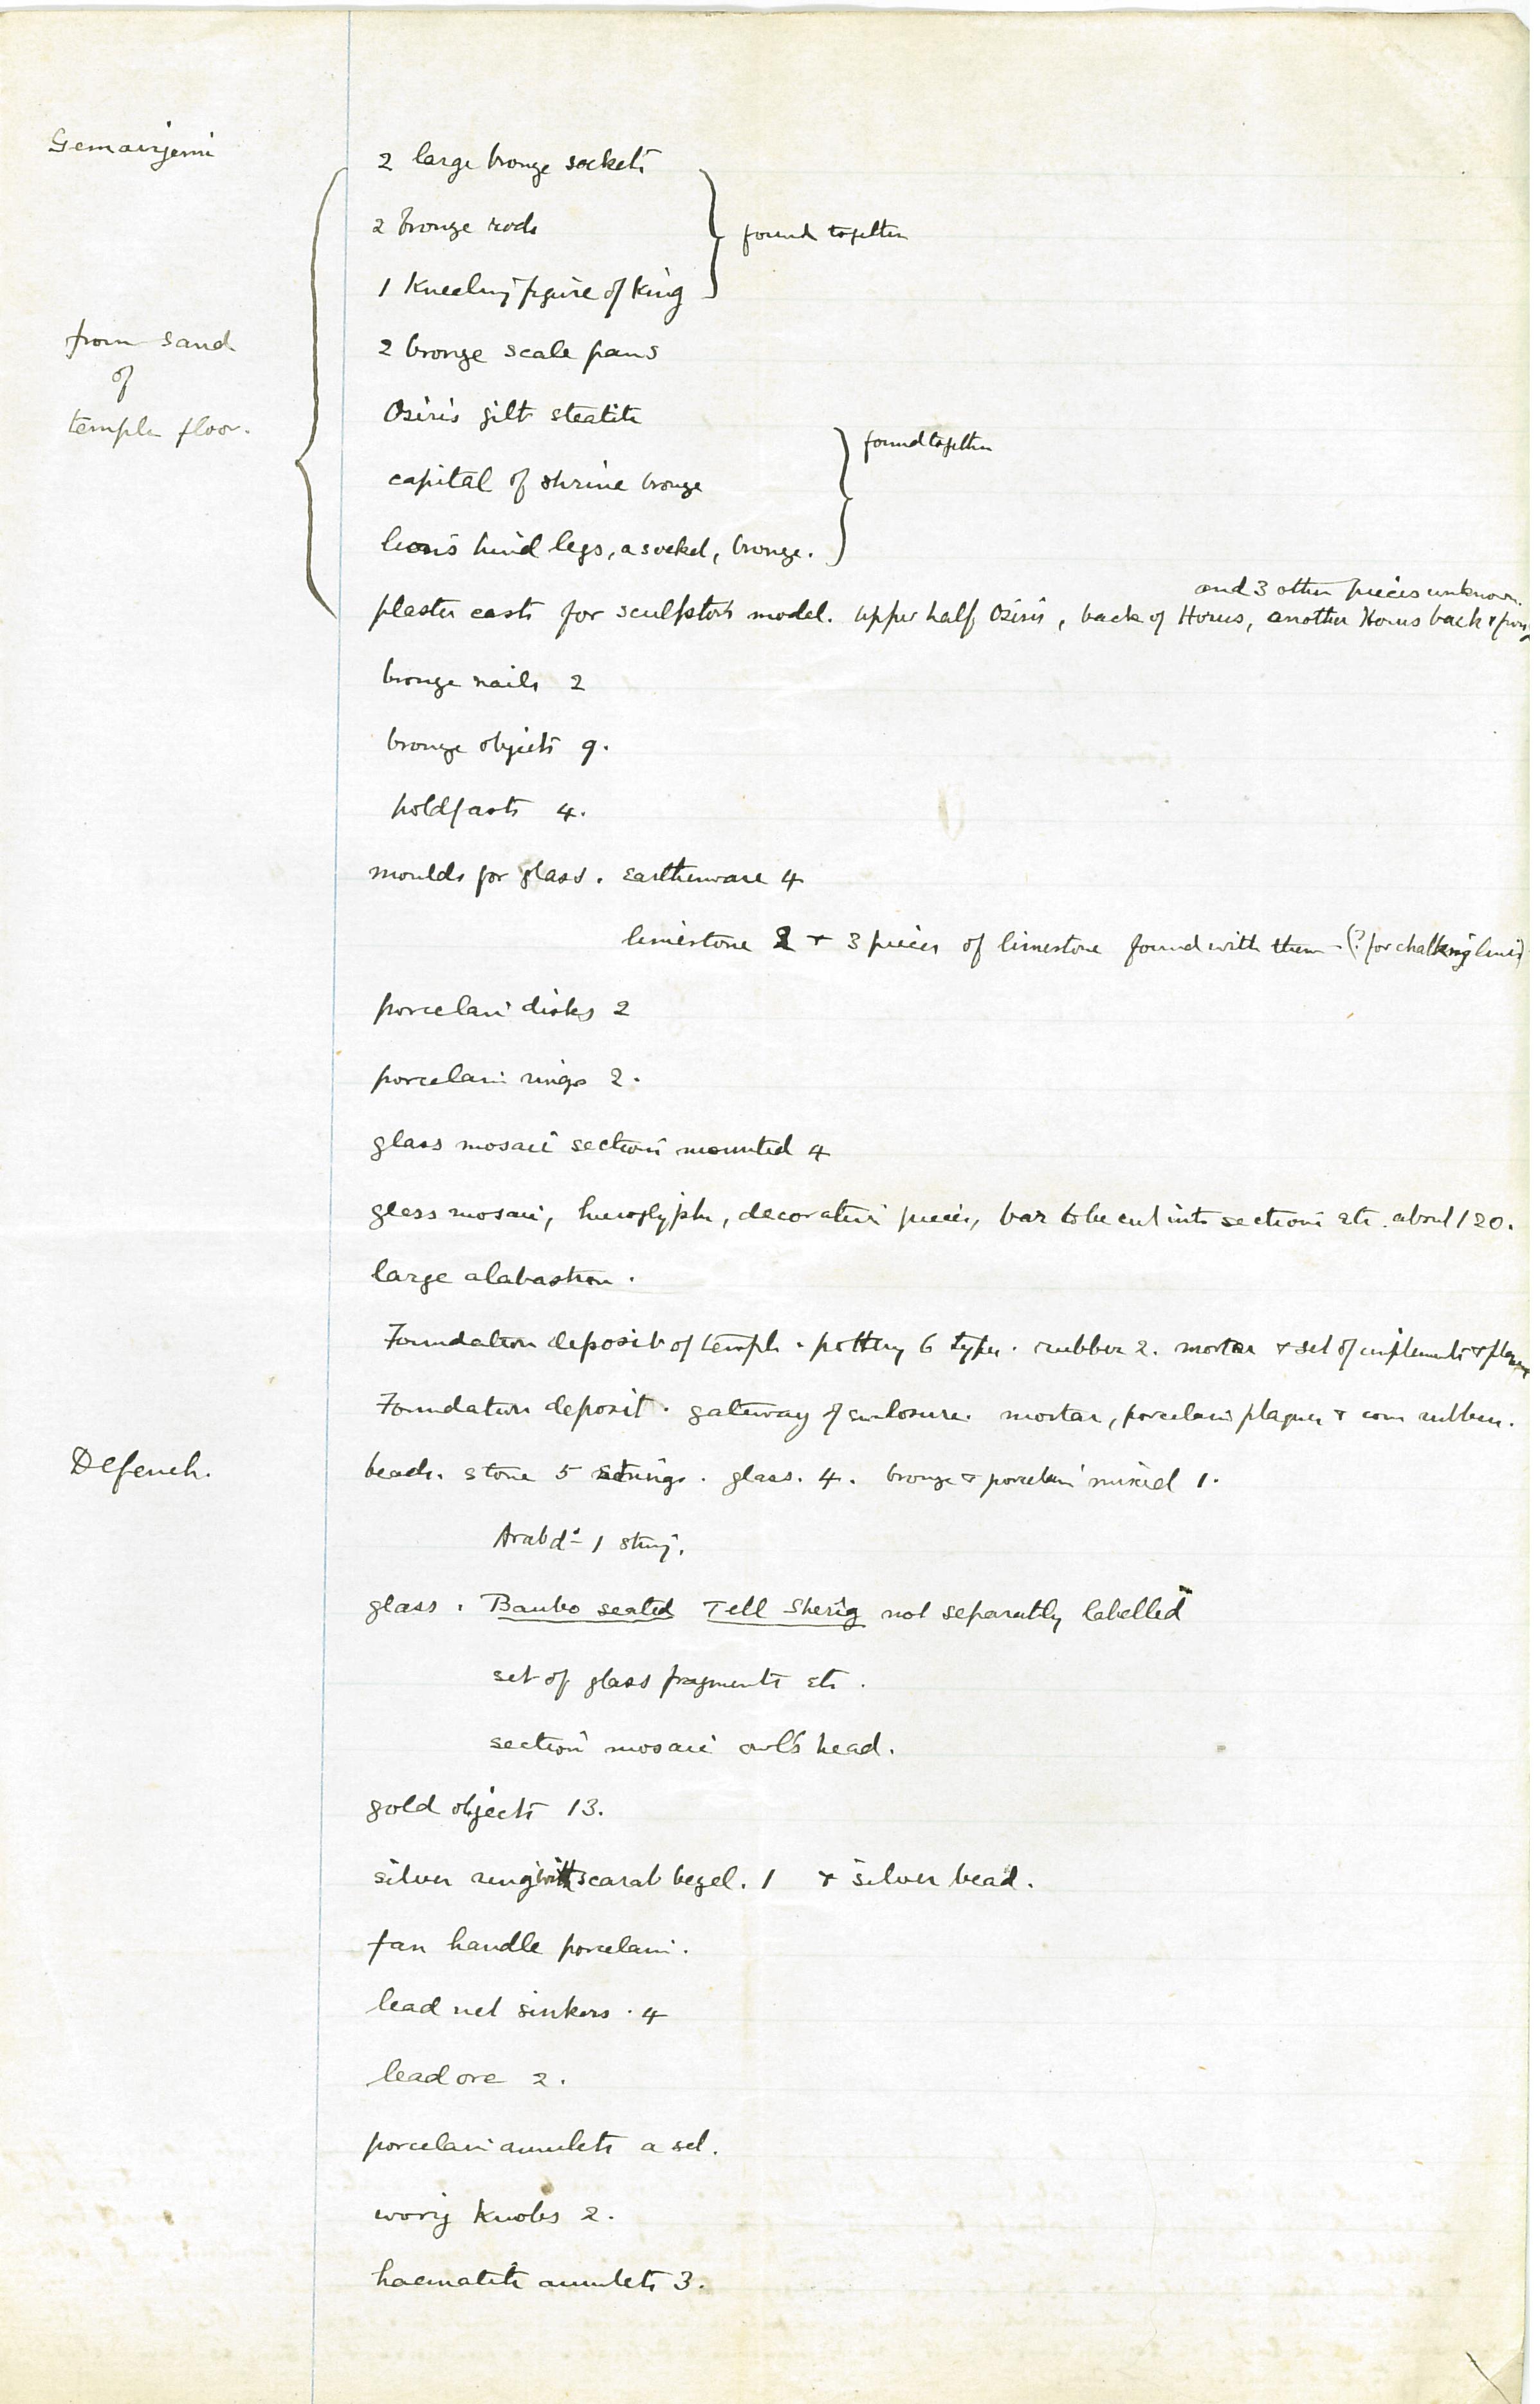 Gemaiyemi
2 large bronze sockets
2 bronze rods
found together
1 Kneeling figure of King
from sand
of
temple floor.
2 bronze scale pans
Osiris gilt steatite
found together
capital of shrine bronze
lion's hind legs, a socket, bronze.
and 3 other pieces unknown.
plaster casts for sculptors model. upper half Osiris, back of Horus, another Horus back &
bronze nails 2
bronze objects 9.
holdfasts 4.
moulds for glass. earthenware 4
limestone 2 + 3 pieces of limestone found with them (? for chalking lines)
porcelain disks 2
porcelain rings 2.
glass mosaic sections mounted 4
glass mosaic, hieroglyphs, decorative pieces, bar to be cut into sections etc. about 120.
large alabastron.
Foundation deposit of temple. pottery 6 types. rubber 2. mortar & set of implements &
Foundation deposit. gateway of enclosure. mortar, porcelain plaques & corn rubber.
Defeneh.
beads. stone 5 strings. glass. 4. bronze & porcelain mixed 1.
Arab do 1 string.
glass. Baubo seated Tell Sherig not separately labelled
set of glass fragments etc.
section mosaic owl's head.
gold objects 13.
silver ring with scarab bezel. 1 & silver bead.
fan handle porcelain.
lead net sinkers. 4
lead ore 2.
porcelain amulets a set.
ivory knobs 2.
haematite amulets 3.